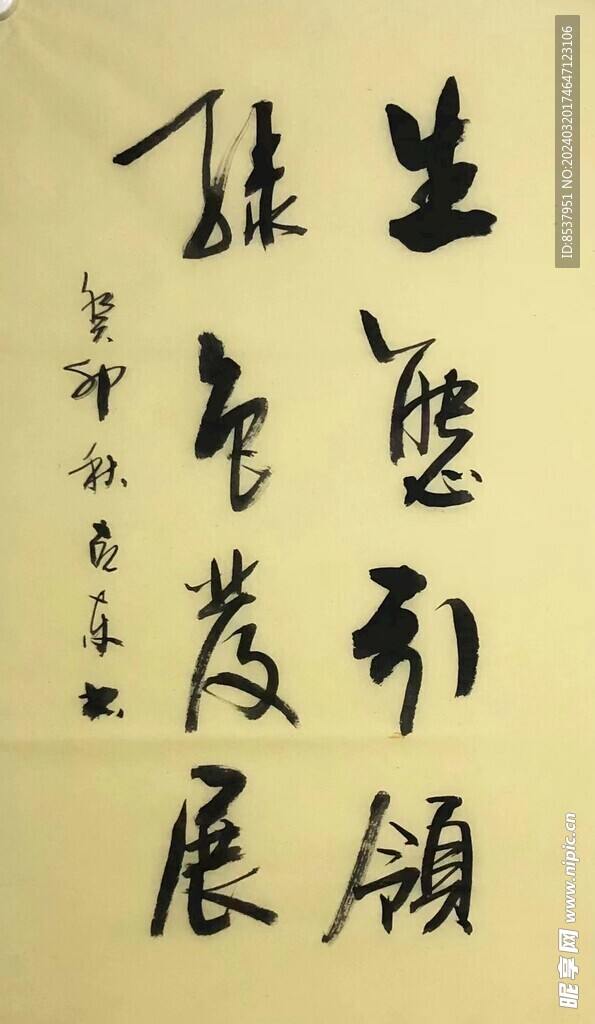 生態引領
綠色發展
癸卯秋克東书
ID:8537951 NO:20240320174647123106
昵享网 www.nipic.cn